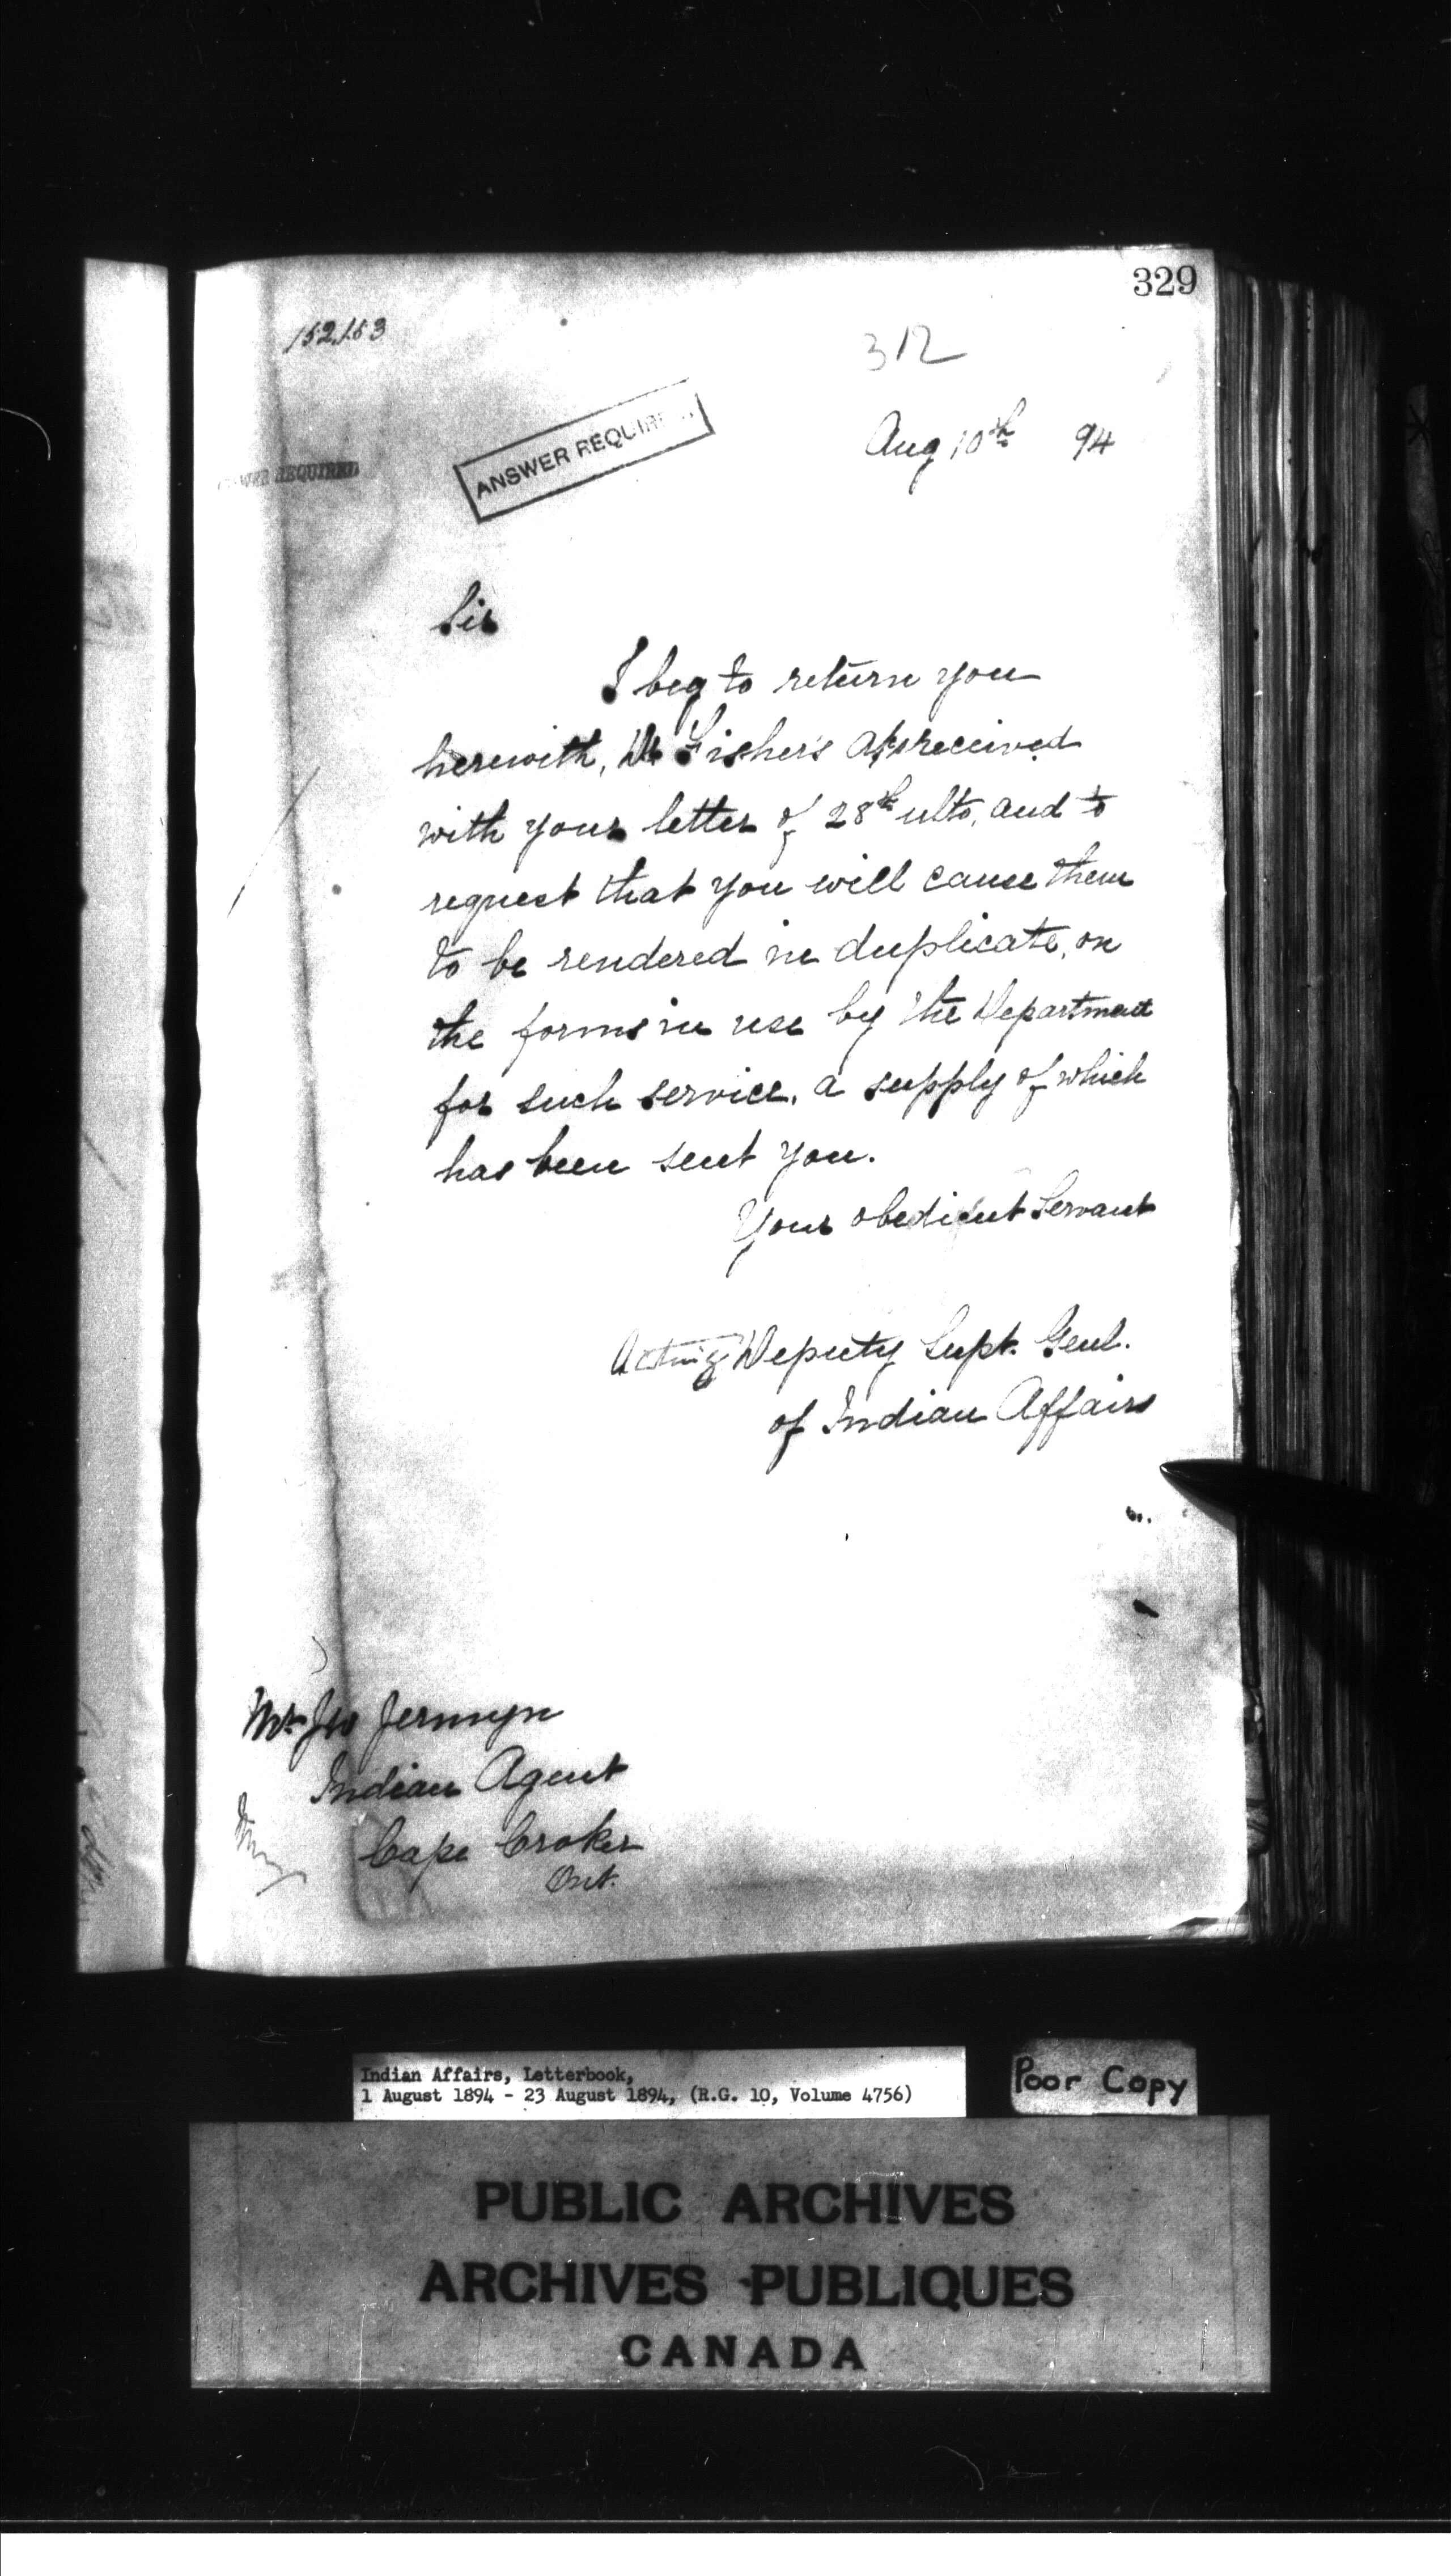 329
152,153
312
ANSWER REQUIRE
Aug 10th 94
REQUIRED
Sir
I beg to return you
herewith, Dr Fisher's a/cs received
with your letter of 28th ulto, and to
request that you will cause them
to be rendered in duplicate, on
the forms in use by the Department
for such service, a supply of which
has been sent you.
Your obedient Servant
Acting Deputy Supt. Genl.
of Indian Affairs
Mr. Jno Jermyn
Indian Agent
Cape Croker
Ont.
Indian Affairs, Letterbook,
1 August 1894 - 23 August 1894, (R.G. 10, Volume 4756)
Poor Copy
PUBLIC ARCHIVES
ARCHIVES PUBLIQUES
CANADA